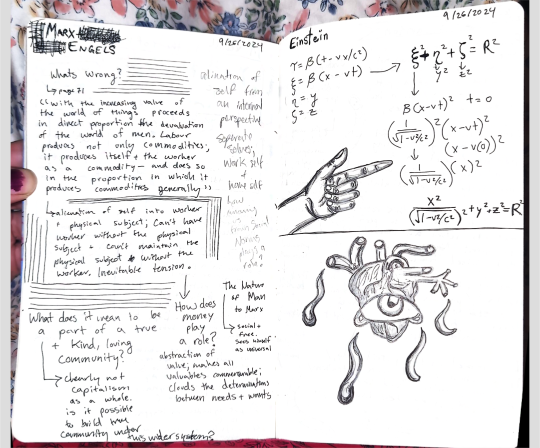 MARX
ENGELS
9/25/2024
Whats wrong?
↳ page 71
"With the increasing value of
the world of things proceeds
in direct proportion the devaluation
of the world of men. Labour
produces not only commodities;
it produces itself + the worker
as a commodity - and does so
in the proportion in which it
produces commodities generally"
alienation of
self from
an internal
perspective
separate
selves;
work self
+
home self
how
money
from Social
play a
role?
→ alienation of self into worker
+ physical subject; Can't have
worker without the physical
subject + can't maintain the
physical subject without the
worker. Inevitable tension.
What does it mean to be
a part of a true
+ kind, loving
Community?
↳ clearly not
capitalism
as a whole.
is it possible
to build true
community under
this wider system?
How does
money
play
a role?
abstraction of
value; makes all
valuables commensurable;
clouds the determinations
between needs + wants
The Nature
of Man
to Marx
↳ Social +
free.
Sees himself
as universal
9/26/2024
Einstein
τ = β(t - vx/c²)
ξ = β(x - vt)
η = y
ζ = z
→ ξ² + η² + ζ² = R²
y² z²
β(x-vt)² t=0
(1/√1-v²/c²)² (x-vt)²
(x-v(0))²
(1/√1-v²/c²)² (x)²
x²/(√1-v²/c²)² + y² + z² = R²